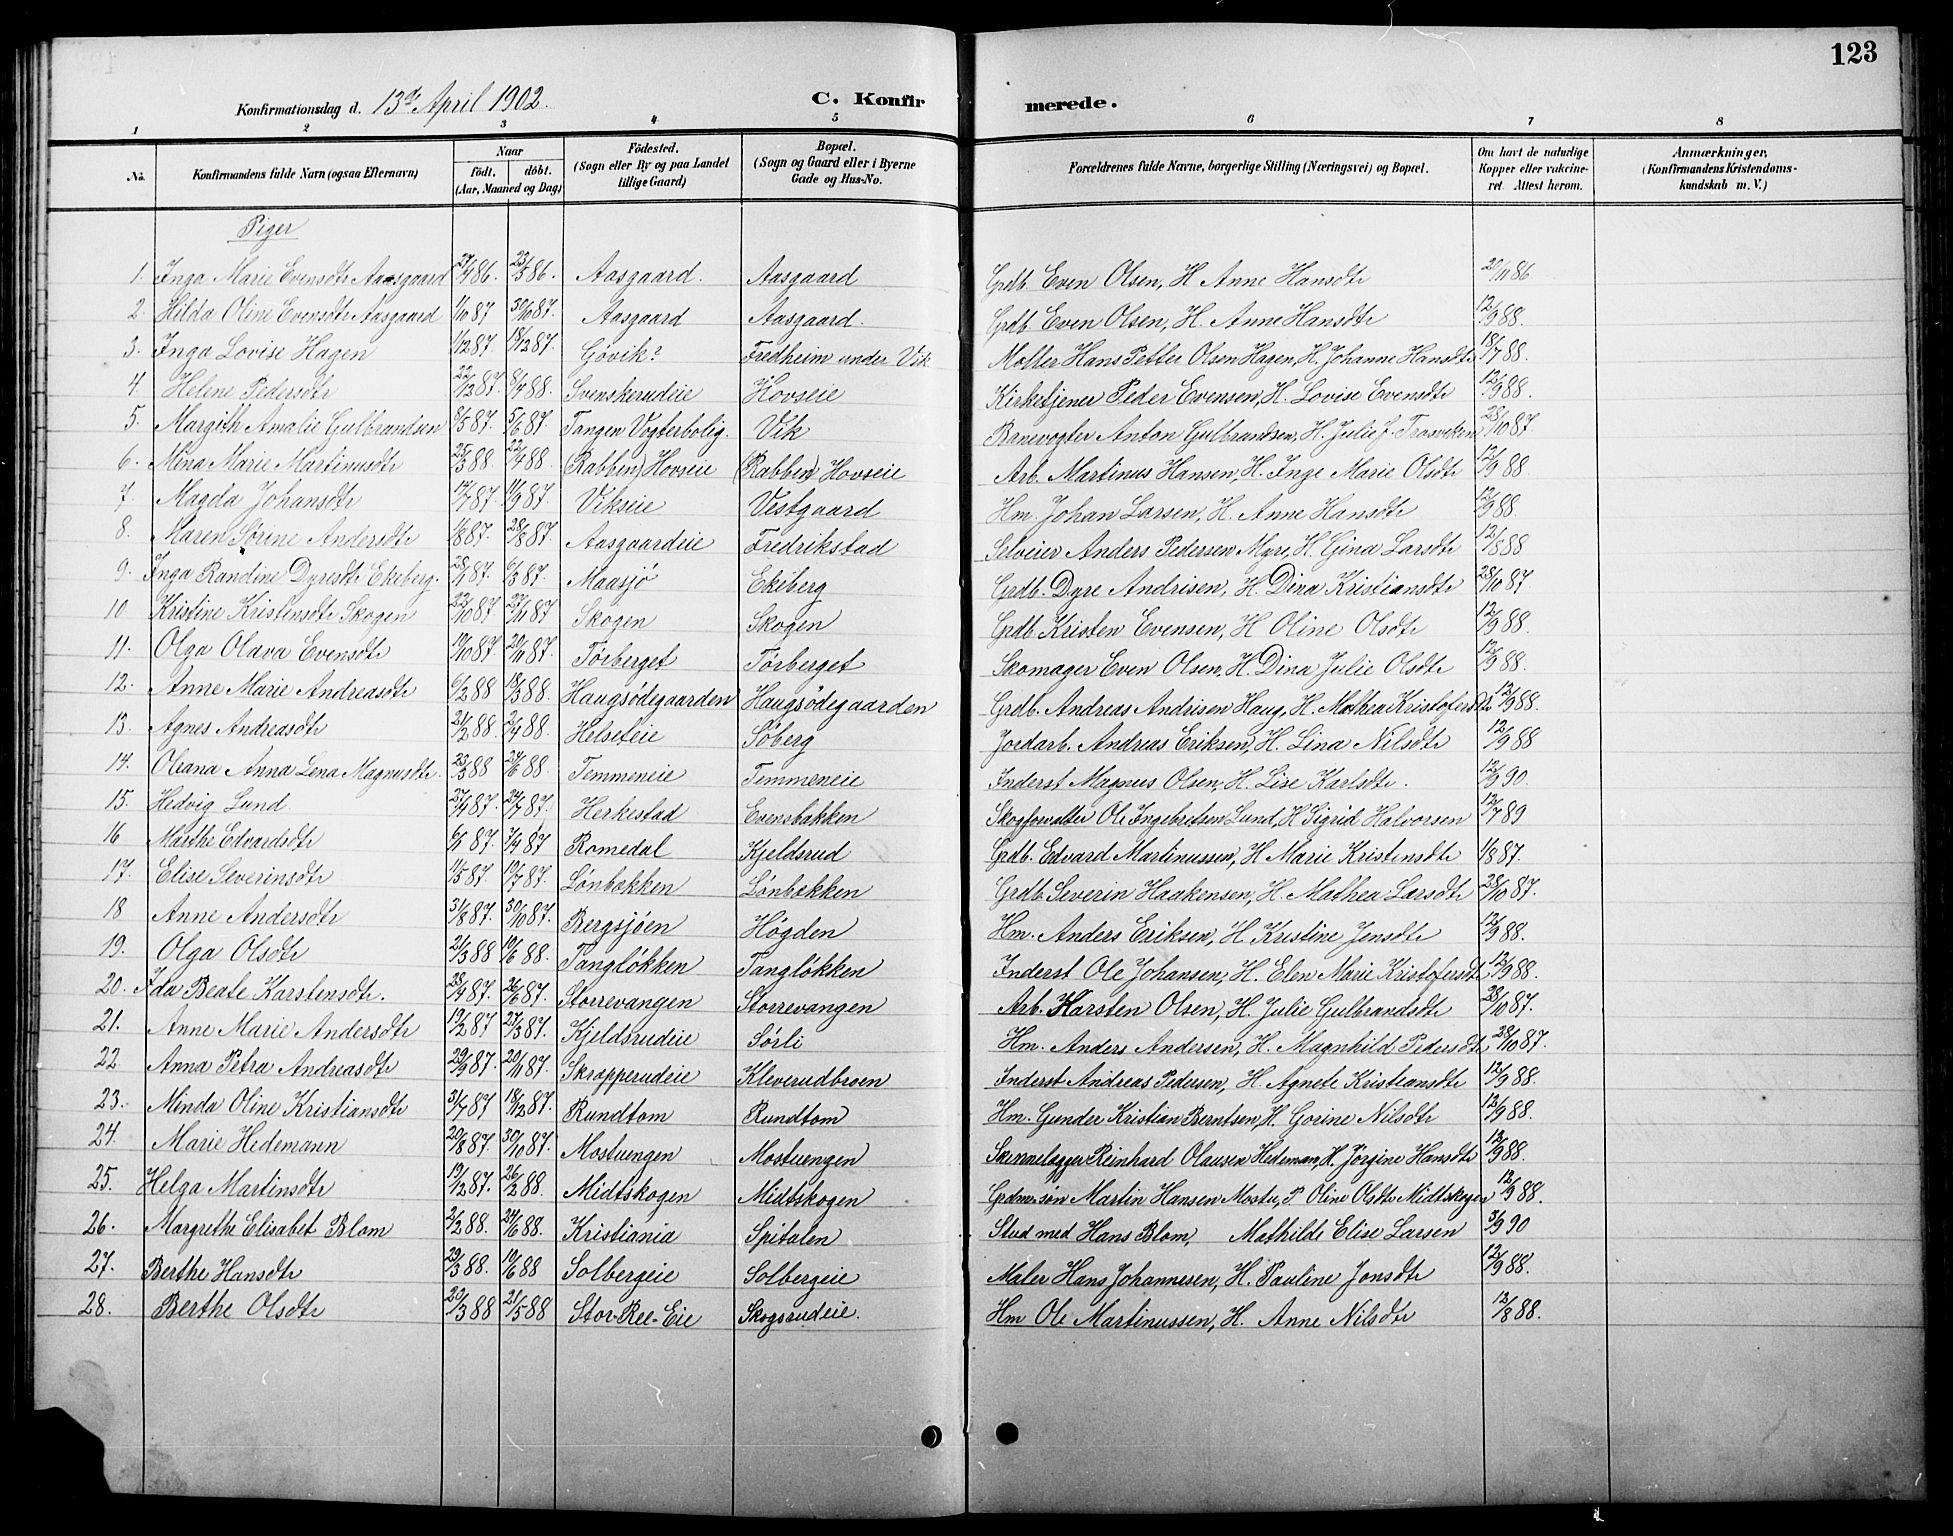 123
Konfirmationsdag d. 13de April 1902. C. Konfirmerede.
1 2 3 4 5 6 7 8
No. Konfirmandens fulde Navn (ogsaa Efternavn) Naar født. døbt. (Aar, Maaned og Dag) Fødested. (Sogn eller By og paa Landet tillige Gaard) Bopæl. (Sogn og Gaard eller i Byerne Gade og Hus-No. Forældrenes fulde Navne, borgerlige Stilling (Næringsvei) og Bopæl. Om havt de naturlige Kopper eller vakcineret. Attest herom. Anmærkninger, (Konfirmandens Kristendomskundskab m. V.)
Piger
1. Inga Marie Evensdtr Aasgaard 27/4 86. 23/5 86. Aasgaard. Aasgaard Grdb. Even Olsen, H. Anne Hansdtr 20/11 86
2. Hilda Oline Evensdtr Aasgaard 1/10 87 30/10 87. Aasgaard Aasgaard. Grdb. Even Olsen, H. Anne Hansdtr 12/9 88.
3. Inga Lovise Hagen 1/12 87. 18/12 87. Gøvik? Fredheim under Vik Molter Hans Petter Olsen Hagen, H. Johanne Hansdtr 18/7 88.
4 Helene Pedersdtr 22/12 87. 8/4 88. Svenskerudeie Hovseie Kirketjener Peder Evensen, H. Lovise Evensdtr 12/9 88.
5. Margith Amalie Gulbrandsen 8/5 87. 5/6 87. Tangen Vogterbolig. Vik Banevogter Anton Gulbrandsen, H. Julie f. Trosviken 28/10 87.
6. Mina Marie Martinusdtr 25/3 88. 22/4 88. (Rabben) Hovseie (Rabben) Hovseie Arb. Martinus Hansen, H. Inge Marie Olsdtr 12/9 88
7. Magda Johansdtr 17/7 87. 11/9 87. Vikseie Vestgaard Hm. Johan Larsen, H. Anne Hansdtr 12/9 88
8. Maren Sørine Andersdtr 1/8 87. 28/8 87. Aasgaardeie Fredrikstad Selveier Anders Pedersen Myr, H. Gina Larsdtr 12/8 88
9. Inga Randine Dyresdtr Ekeberg. 28/1 87. 6/3 87. Maasjø Ekeberg Grdb. Dyre Andrisen, H. Dina Kristiansdtr 28/10 87
10. Kristine Kristensdtr Skogen 22/10 87. 27/11 87 Skogen Skogen Grdb. Kristen Evensen, H. Oline Olsdtr 12/9 88.
11. Olga Olava Evensdtr 19/10 87. 20/11 87. Tørberget Tørberget Skomager Even Olsen, H. Dina Julie Olsdtr 12/9 88.
12. Anne Marie Andreasdtr 6/2 88 18/3 88. Haugsødegaarden Haugsødegaarden Grdb. Andreas Andrisen Haug, H. Mathea Kristofersdtr 12/9 88.
13. Agnes Andreasdtr 21/2 88. 2/4 88. Helseteie Søberg Jordarb. Andreas Eriksen, H. Lina Nilsdtr 12/9 88
14. Oleana Anna Lena Magnusdtr. 23/3 88 24/6 88. Temmeneie Temmeneie Inderst Magnus Olsen, H. Lise Karlsdtr. 12/9 90.
15. Hedvig Lund. 27/4 87. 24/7 87. Herkestad Evensbakken Skogforvalter Ole Ingebretsen Lund, H. Sigrid Halvorsen 12/7 89
16 Marthe Edvardsdtr 6/1 87. 7/4 87 Romedal Kjeldsrud Grdb. Edvard Martinussen, H. Marie Kristensdtr 1/8 87.
17. Elise Severinsdtr 11/5 87. 10/7 87. Lønbekken Lønbekken Grdb. Severin Haakensen, H. Mathea Larsdtr 28/10 87.
18 Anne Andersdtr 31/8 87. 30/10 87. Bergsjøen Høgden Hm. Anders Eriksen, H. Kristine Jensdtr 12/9 88.
19. Olga Olsdtr 21/3 88 10/6 88. Tangløkken Tangløkken Inderst Ole Johansen, H. Elen Marie Kristofersdtr 12/9 88.
20. Ida Beate Karstensdtr. 28/4 87. 26/6 87. Storrevangen Storrevangen Arb. Karsten Olsen, H. Julie Gulbrandsdtr 28/10 87.
21. Anne Marie Andersdtr 19/2 87 27/3 87. Kjeldsrudeie Sørli Hm. Anders Andersen, H. Magnhild Pedersdtr 28/10 87.
22 Anna Petra Andreasdtr 29/9 87. 20/11 87. Skrapperudeie Kleverudbroen Inderst Andreas Pedersen, H. Agnete Kristiansdtr 12/9 88.
23. Minda Oline Kristiansdtr 31/7 87 18/12 87. Rundtom Rundtom Hm. Gunder Kristian Berntsen, H. Gorine Nilsdtr 12/9 88.
24. Marie Hedemann 20/8 87. 30/10 87. Mostuengen Mostuengen Skinnelægger Reinhard Olausen Hedeman, H. Jørgine Hansdtr 12/9 88.
25. Helga Martinsdtr 19/12 87. 26/2 88. Midtskogen Midtskogen Grdmsøn Martin Hansen Mostu, P. Oline Olsdtr Midtskogen 12/9 88.
26. Margrethe Elisabet Blom 2/2 88. 24/6 88. Kristiania Spitalen Stud med Hans Blom, Mathilde Elise Larsen 3/9 90
27. Berthe Hansdtr 29/3 88. 10/6 88 Solbergeie Solbergeie Maler Hans Johannesen, H. Pauline Jonsdtr 12/9 88.
28. Berthe Olsdtr 20/3 88 21/5 88 Stor-Ree-Eie Skogsrudeie. Hm Ole Martinussen, H. Anne Nilsdtr 13/8 88.